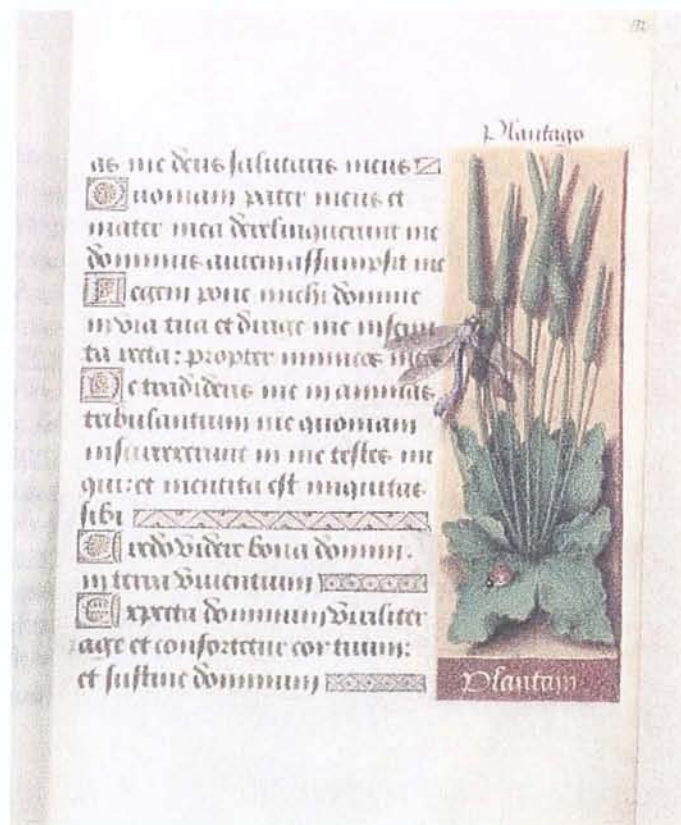 Plantago
as me deus salutaris meus
Quoniam pater meus et
mater mea dereliquerunt me
dominus autem assumpsit me
Legem pone michi domine
in via tua et dirige me in semi
ta recta: propter inimicos meos
Ne tradideris me in animas
tribulantium me quoniam
insurrexerunt in me testes ini
qui: et mentita est iniquitas
sibi
Credo videre bona domini.
in terra viventium
Expecta dominum viriliter
age et confortetur cor tuum:
et sustine dominum
Plantain